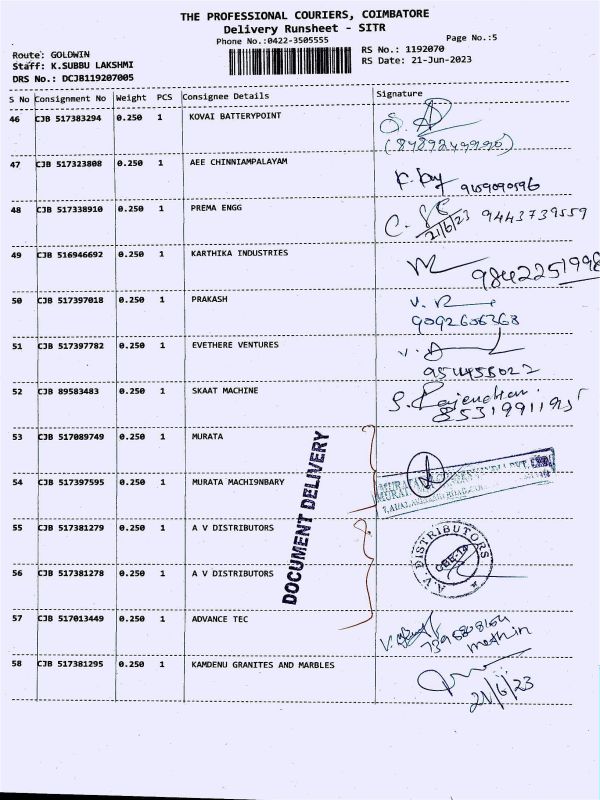 THE PROFESSIONAL COURIERS, COIMBATORE
Delivery Runsheet - SITR
Phone No.:0422-3505555
Page No.:5
Route: GOLDWIN
Staff: K.SUBBU LAKSHMI
DRS No.: DCJB119207005
RS No.: 1192070
RS Date: 21-Jun-2023
S No Consignment No Weight PCS Consignee Details Signature
46 CJB 517383294 0.250 1 KOVAI BATTERYPOINT
47 CJB 517323808 0.250 1 AEE CHINNIAMPALAYAM
48 CJB 517338910 0.250 1 PREMA ENGG
21/6/23 9443739559
49 CJB 516946692 0.250 1 KARTHIKA INDUSTRIES
9842251998
50 CJB 517397018 0.250 1 PRAKASH
9092606368
51 CJB 517397782 0.250 1 EVETHERE VENTURES
52 CJB 89583483 0.250 1 SKAAT MACHINE
53 CJB 517089749 0.250 1 MURATA
54 CJB 517397595 0.250 1 MURATA MACHI9NBARY
DOCUMENT DELIVERY
55 CJB 517381279 0.250 1 A V DISTRIBUTORS
A.V. DISTRIBUTORS
CBE-14
56 CJB 517381278 0.250 1 A V DISTRIBUTORS
57 CJB 517013449 0.250 1 ADVANCE TEC
58 CJB 517381295 0.250 1 KAMDENU GRANITES AND MARBLES
21/6/23